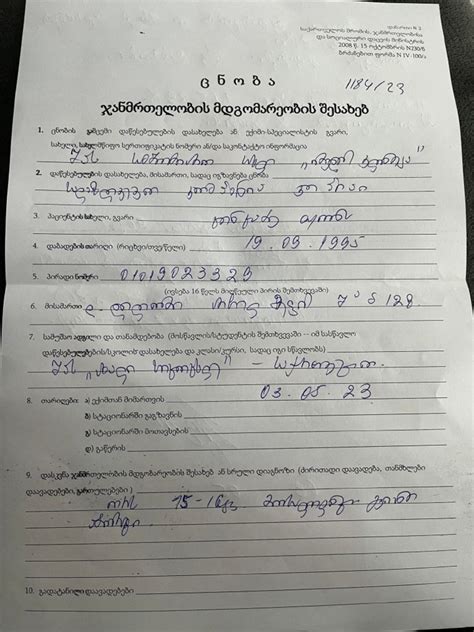 დანართი N 2
საქართველოს შრომის, ჯანმრთელობისა
და სოციალური დაცვის მინისტრის
2008 წ. 15 ოქტომბრის N230/ნ
ბრძანებით ფორმა N IV-100/ა
ც ნ ო ბ ა 1184/23
ჯანმრთელობის მდგომარეობის შესახებ
1. ცნობის გამცემი დაწესებულების დასახელება ან ექიმი-სპეციალისტის გვარი,
სახელი, სახელმწიფო სერტიფიკატის ნომერი ან/და საკონტაქტო ინფორმაცია
შპს
2. დაწესებულების დასახელება, მისამართი, სადაც იგზავნება ცნობა
სადაზღვევო კომპანია
3. პაციენტის სახელი, გვარი
4. დაბადების თარიღი (რიცხვი/თვე/წელი) 19.09.1995
5. პირადი ნომერი 01019023329
(ივსება 16 წელს მიღწეული პირის შემთხვევაში)
6. მისამართი ქ. თბილისი
7. სამუშაო ადგილი და თანამდებობა (მოსწავლის/სტუდენტის შემთხვევაში -- იმ სასწავლო
დაწესებულების/სკოლის დასახელება და კლასი/კურსი, სადაც იგი სწავლობს)
შპს
8. თარიღები: ა) ექიმთან მიმართვის 03.05.23
ბ) სტაციონარში გაგზავნის
გ) სტაციონარში მოთავსების
დ) გაწერის
9. დასკვნა ჯანმრთელობის მდგომარეობის შესახებ ან სრული დიაგნოზი (ძირითადი დაავადება, თანმხლები
დაავადებები, გართულებები)
ორს. 15-16კვ.
10. გადატანილი დაავადებები